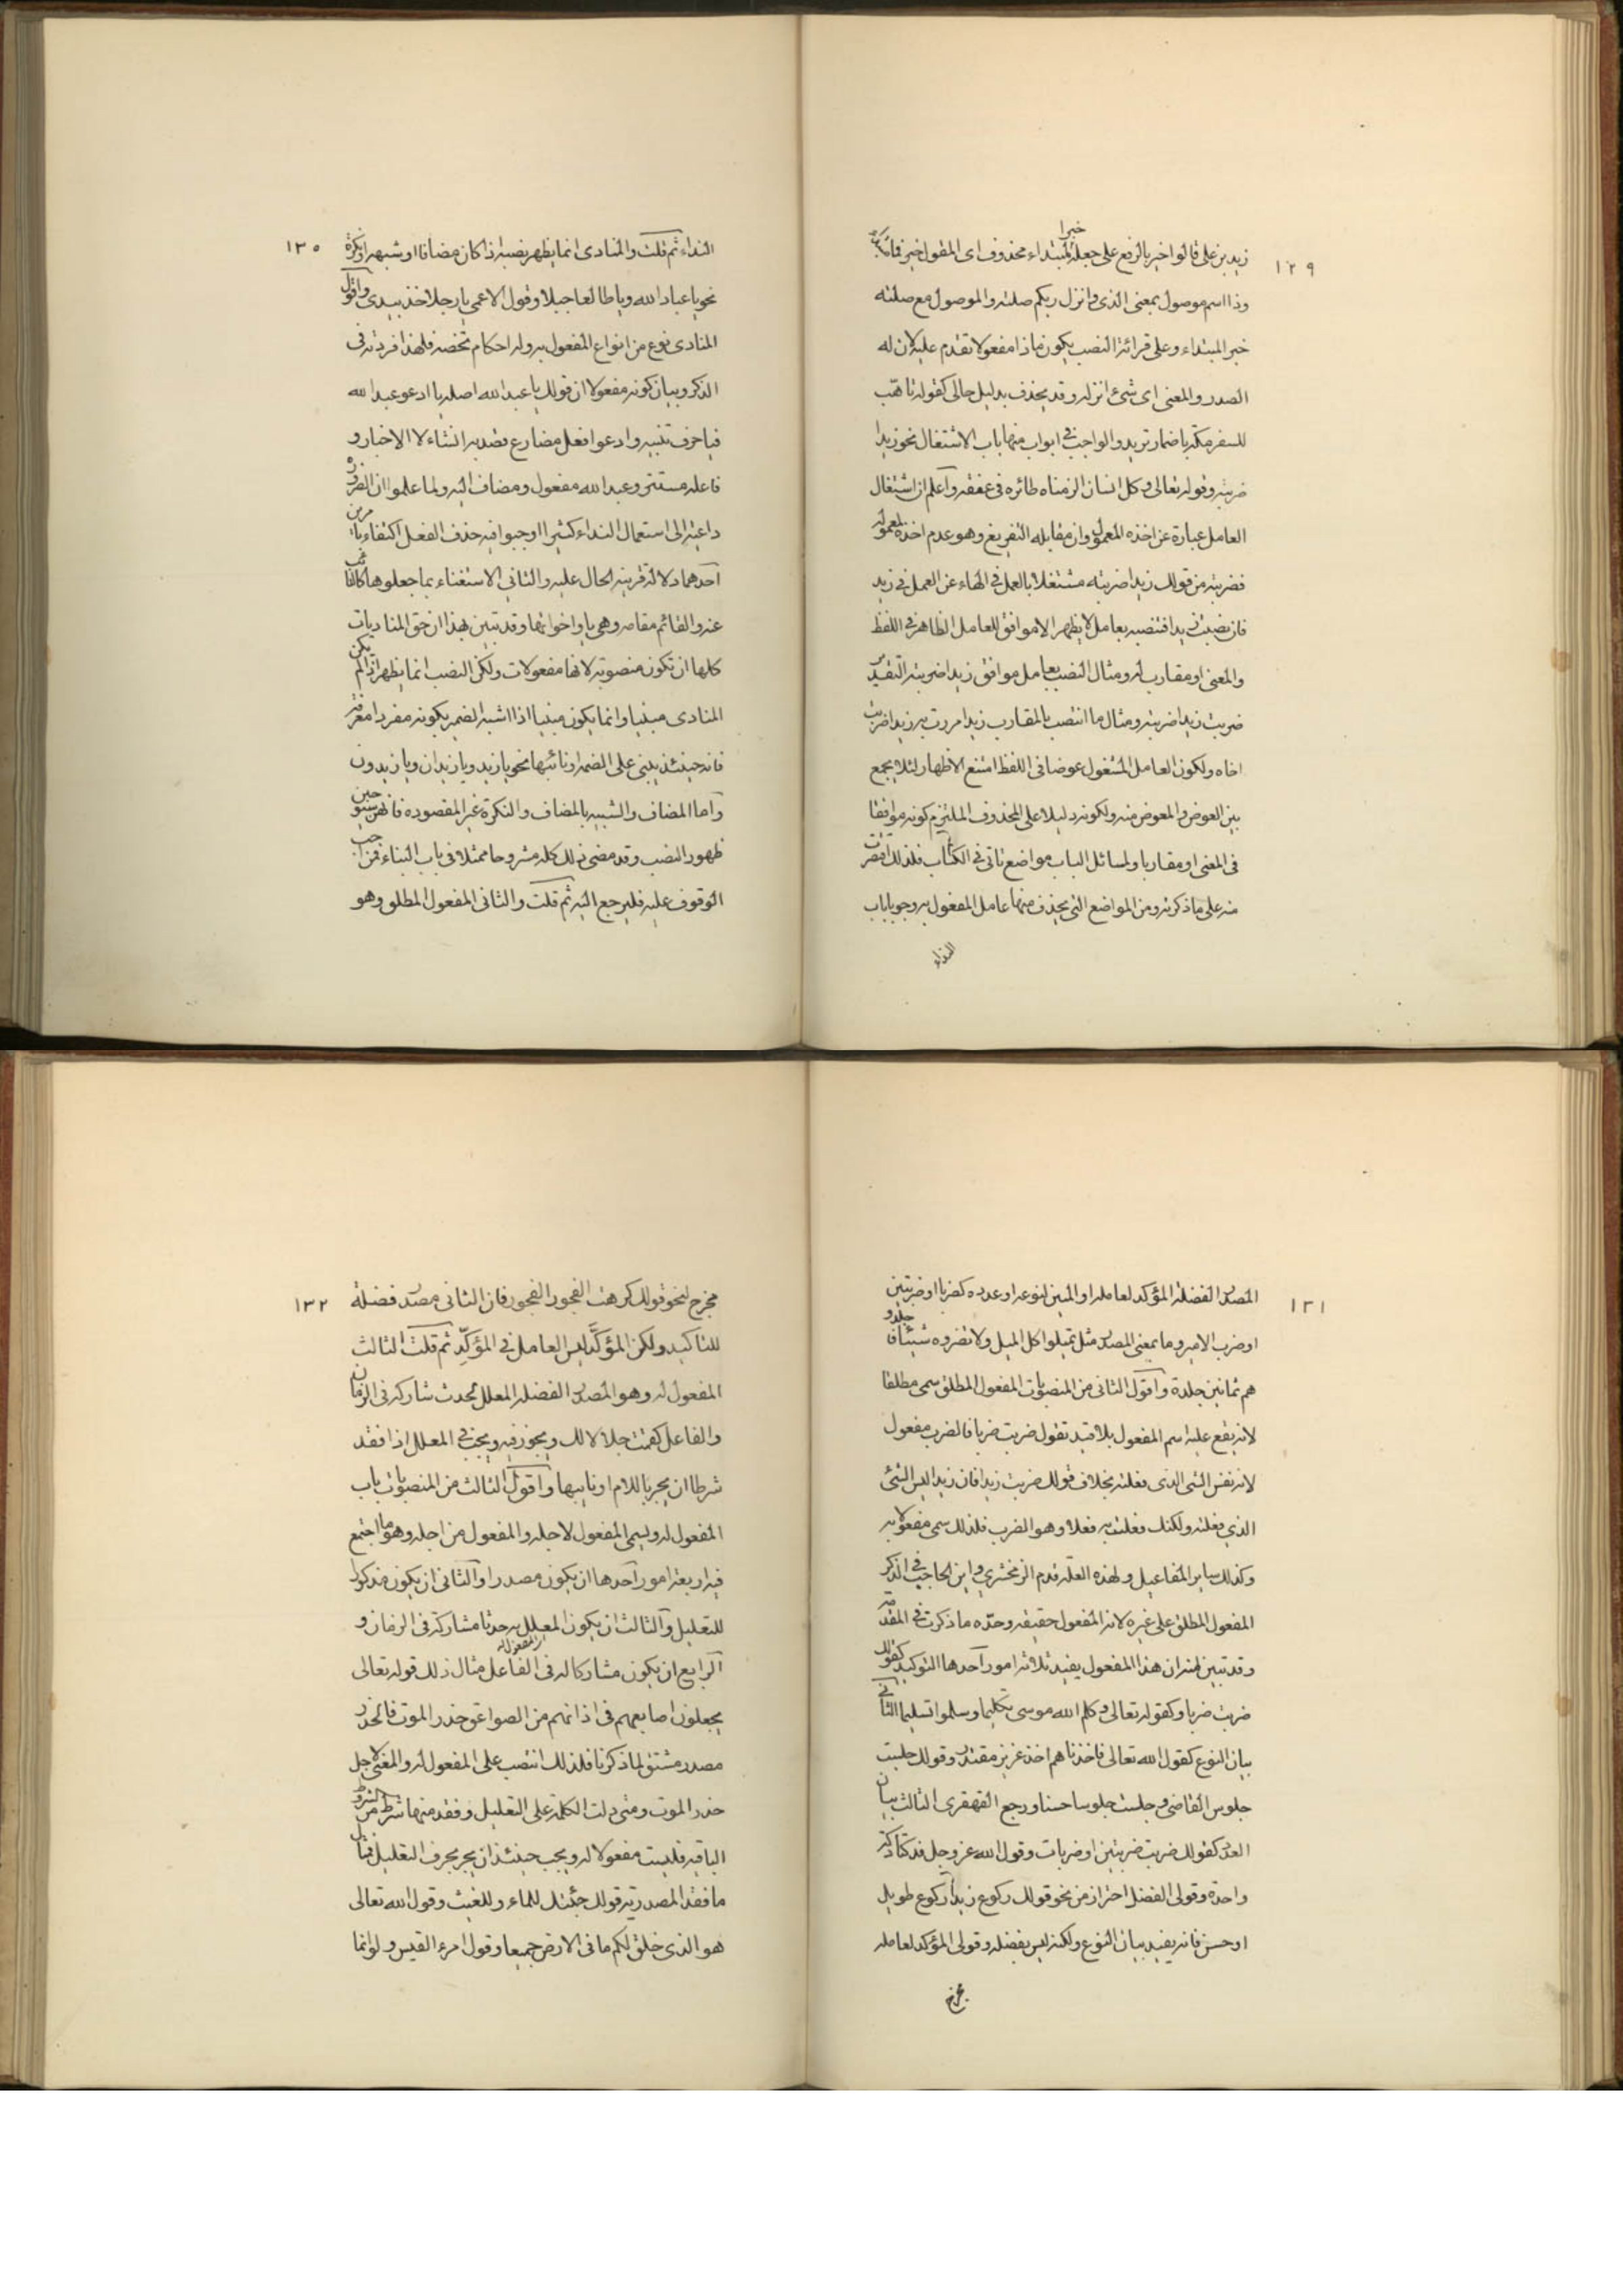 ١٢٩
زيد بن علي قالوا خير بالرفع على جعله خبرا لمبتداء محذوف اى المقول خير فما
وذا اسم موصول بمعنى الذى وانزل ربكم صلته والموصول مع صلته
خبر المبتداء وعلى قرائة النصب يكون ماذا مفعولا تقدم عليه لان له
الصدر والمعنى اى شئ انزله وقد يحذف بدليل حالى كقوله تاهب
للسفر مكة باضمار تريد والواجب فى ابواب منها باب الاشتغال نحو زيدا
ضربته وقوله تعالى وكل انسان الزمناه طائره فى عنقه وآعلم ان اشتغال
العامل عبارة عن اخذه المعمول وان مقابله التفريغ وهو عدم اخذه لمعموله
فضربته من قولك زيدا ضربته مشتغلا بالعمل فى الهاء عن العمل فى زيد
فان نصبت زيدا فتنصبه بعامل لا يظهر الا موافق للعامل الظاهر فى اللفظ
والمعنى او مقارب له ومثال النصب بعامل موافق زيدا ضربته التقدير
ضربت زيدا ضربته ومثال ما انتصب بالمقارب زيدا مررت به زيدا ضربت
اخاه ولكون العامل المشغول عوضا فى اللفظ امتنع الاظهار لئلا يجمع
بين العوض والمعوض منه ولكونه دليلا على المحذوف الملتزم كونه موافقا
فى المعنى او مقاربا ولمسائل الباب مواضع تاتى فى الكتاب فلذلك اقتصرت
منه على ما ذكرته ومن المواضع التى يحذف منها عامل المفعول به وجوبا باب
النداء
١٣٠
النداء ثم قلت والمنادى انما يظهر نصبه اذا كان مضافا او شبهه او نكرة
نحو يا عباد الله ويا طالعا جبلا وقول الاعمى يا رجلا خذ بيدى واقول
المنادى نوع من انواع المفعول به وله احكام تخصه فلهذا افردته فى
الذكر وبيان كونه مفعولا ان قولك يا عبد الله اصله يا ادعو عبد الله
فيا حرف تنبيه وادعوا فعل مضارع قصد به الانشاء لا الاخبار و
فاعله مستتر وعبد الله مفعول ومضاف اليه ولما علموا ان الضرورة
داعية الى استعمال النداء كثيرا اوجبوا فيه حذف الفعل اكتفاء بامرين
آحدهما دلالة قرينة الحال عليه والثانى الاستغناء بما جعلوها كالنائب
عنه والقائم مقامه وهى يا واخواتها وقد تبين بهذا ان حق المناديات
كلها ان تكون منصوبة لانها مفعولات ولكن النصب انما يظهر اذا لم يكن
المنادى مبنيا وانما يكون مبنيا اذا اشبه الضمير بكونه مفردا معرفة
فانه حينئذ يبنى على الضمه او نائبها نحو يا زيد ويا زيدان ويا زيدون
وآما المضاف والشبيه بالمضاف والنكرة غير المقصوده فانهن يستوجبن
ظهور النصب وقد مضى ذلك كله مشروحا ممثلا فى باب البناء فمن احب
الوقوف عليه فليرجع اليه ثم قلت والثانى المفعول المطلق وهو
١٣١
المصدر الفضلة المؤكد لعامله او المبين لنوعه او عدده كضربا او ضربتين
او ضرب الامير وما بمعنى المصدر مثل تميلوا كل الميل ولا تضروه شيئا فاجلدو
هم ثمانين جلدة واقول الثانى من المنصوبات المفعول المطلق سمى مطلقا
لانه يقع عليه اسم المفعول بلا قيد تقول ضربت ضربا فالضرب مفعول
لانه نفس الشى الذى فعلته بخلاف قولك ضربت زيدا فان زيدا ليس الشئ
الذي فعلته ولكنك فعلت به فعلا وهو الضرب فلذلك سمى مفعولا به
وكذلك ساير المفاعيل ولهذه العلة قدم الزمخشرى وابن الحاجب فى الذكر
المفعول المطلق على غيره لانه المفعول حقيقه وحدّه ما ذكرت فى المقدمة
وقد تبين منه ان هذا المفعول يفيد ثلاثة امور آحدها التوكيد كقولك
ضربت ضربا وكقوله تعالى وكلم الله موسى تكليما وسلموا تسليما الثانى
بيان النوع كقول الله تعالى فاخذناهم اخذ عزيز مقتدر وقولك جلست
جلوس القاضى وجلست جلوسا حسنا ورجع القهقرى الثالث بيان
العدد كقولك ضربت ضربتين او ضربات وقول الله عز وجل فدكتا دكة
واحدة وقولى الفضلة احتراز من نحو قولك ركوع زيد ركوع طويل
او حسن فانه يفيد بيان النوع ولكنه ليس بفضلة وقولى المؤكد لعامله
مخرج
١٣٢
مخرج لنحو قولك كرهت الفجور الفجور فان الثانى مصدر فضلة
للتاكيد ولكن المؤكَّد ليس العامل فى المؤكِّد ثم قلت الثالث
المفعول له وهو المصدر الفضلة المعلل لحدث شاركه فى الزمان
والفاعل كقمت اجلالا لك ويجوز فيه ويجب فى المعلل اذا فقد
شرطا ان يجر باللام او نايبها واقول الثالث من المنصوبات باب
المفعول له ويسمى المفعول لاجله والمفعول من اجله وهو ما اجتمع
فيه اربعة امور آحدها ان يكون مصدرا والثانى ان يكون مذكورا
للتعليل والثالث ان يكون المعلل به حدثا مشاركه فى الزمان و
الرابع ان يكون مشاركا له فى الفاعل مثال ذلك قوله تعالى
يجعلون اصابعهم فى اذانهم من الصواعق حذر الموت فالحذر
مصدر مشتق لما ذكرنا فلذلك انتصب على المفعول له والمعنى لاجل
حذر الموت ومتى دلت الكلمة على التعليل وفقد منها شرط من الشروط
الباقية فليست مفعولا له ويجب حينئذ ان يجر بحرف التعليل فمثال
ما فقد المصدرية قولك جئتك للماء وللغيث وقول الله تعالى
هو الذى خلق لكم ما فى الارض جميعا وقول امرء القيس ولو انما